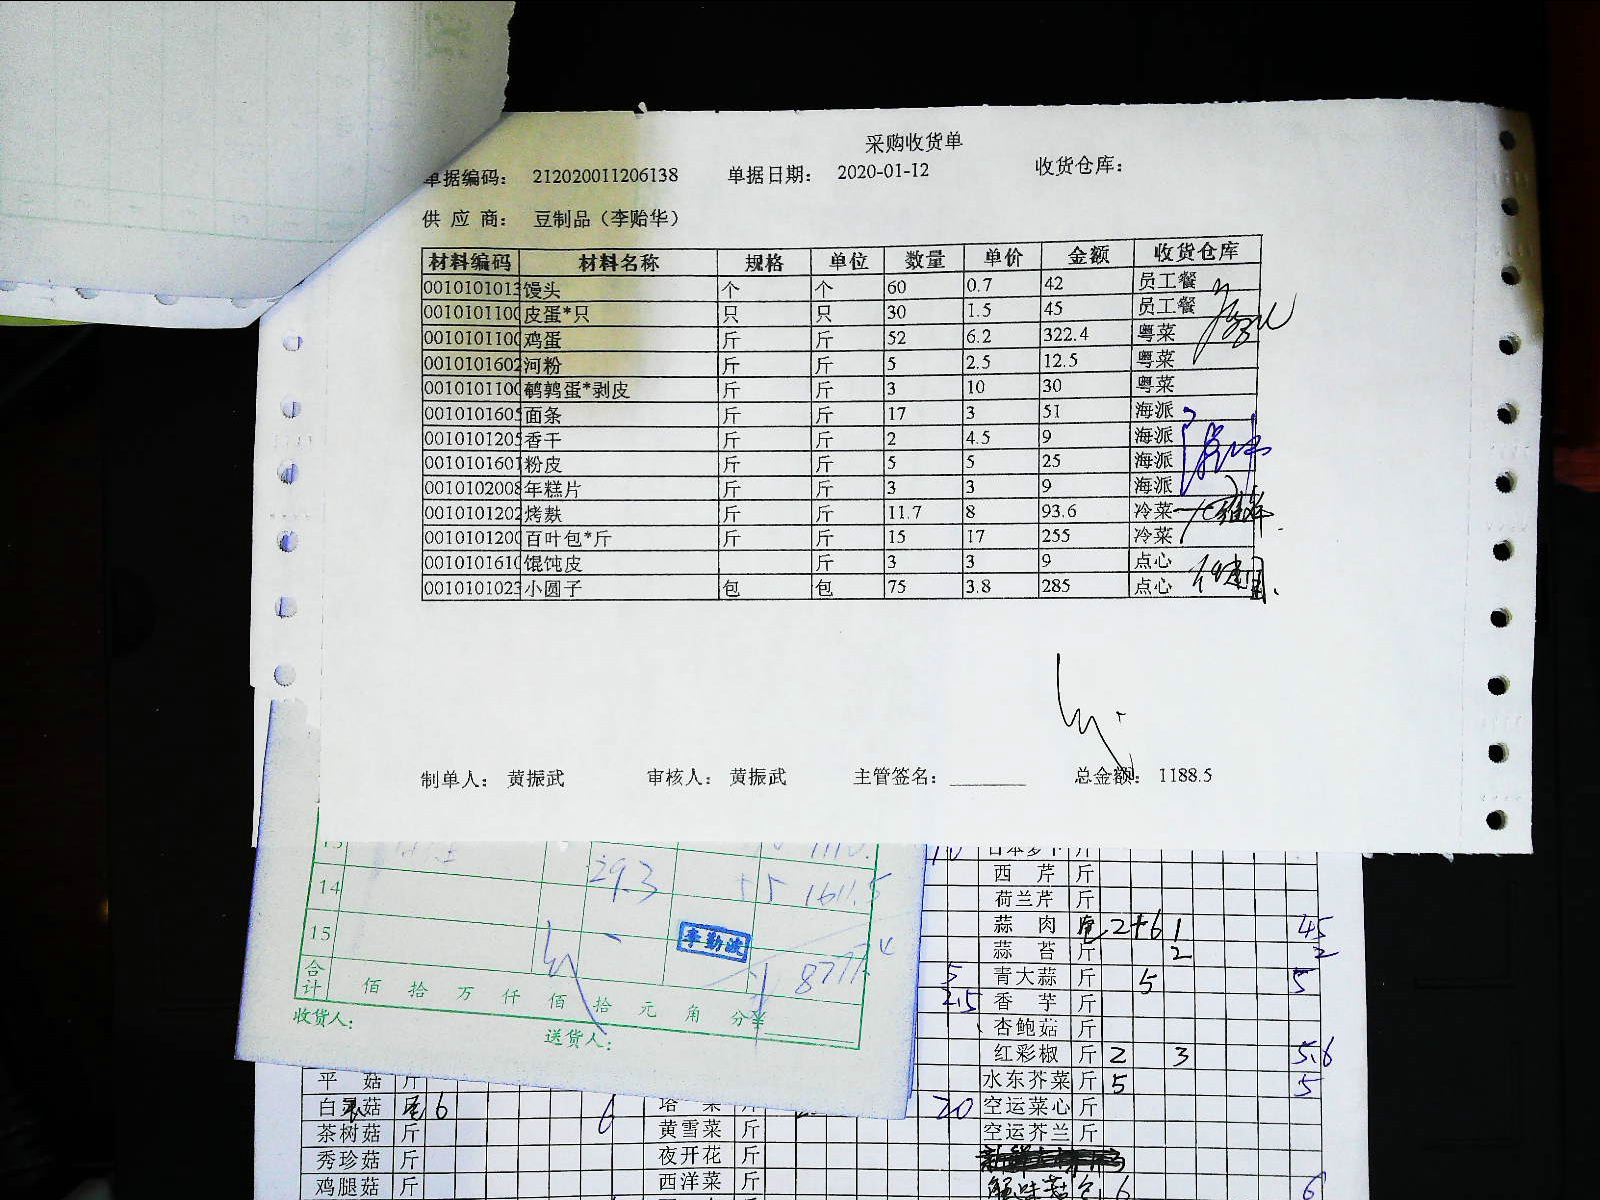 采购收货单
单据编码: 212020011206138 单据日期: 2020-01-12 收货仓库:
供 应 商: 豆制品（李贻华）
材料编码 材料名称 规格 单位 数量 单价 金额 收货仓库
0010101013 馒头 个 个 60 0.7 42 员工餐
001010110 皮蛋*只 只 只 30 1.5 45 员工餐
001010110 鸡蛋 斤 斤 52 6.2 322.4 粤菜
0010101602 河粉 斤 斤 5 2.5 12.5 粤菜
001010110 鹌鹑蛋*剥皮 斤 斤 3 10 30 粤菜
0010101605 面条 斤 斤 17 3 51 海派
0010101205 香干 斤 斤 2 4.5 9 海派
0010101601 粉皮 斤 斤 5 5 25 海派
0010102008 年糕片 斤 斤 3 3 9 海派
0010101202 烤麸 斤 斤 11.7 8 93.6 冷菜
001010120 百叶包*斤 斤 斤 15 17 255 冷菜
001010161 馄饨皮 斤 3 3 9 点心
0010101023 小圆子 包 包 75 3.8 285 点心
制单人: 黄振武 审核人: 黄振武 主管签名: 总金额: 1188.5
14 29.3 5 1611.5
15 李勤波
合计 佰 拾 万 仟 佰 拾 元 角 分¥
收货人:
送货人:
西 芹 斤
荷兰芹 斤
蒜 肉 2+6 1 45
蒜 苔 斤 2 2
5 青大蒜 斤 5 5
2.5 香 芋 斤
杏鲍菇 斤
红彩椒 斤 2 3 5.6
水东芥菜 斤 5 5
平 菇 斤
白 菇 6 6
塔 菜 斤 20
空运菜心 斤
茶树菇 斤 黄雪菜 斤 空运芥兰 斤
秀珍菇 斤 夜开花 斤
鸡腿菇 斤 西洋菜 斤 蟹味菇 6 6